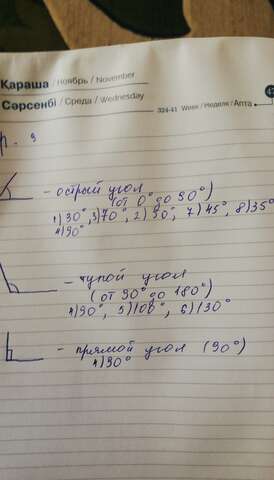 Қараша / Ноябрь / November
Сәрсенбі / Среда / Wednesday
324-41 Week / Неделя / Апта
р. 3
- острый угол
(от 0° до 90°)
1) 30°, 3) 70°, 2) 50°, 7) 45°, 8) 35°
4) 90°
- тупой угол
(от 90° до 180°)
4) 90°, 5) 108°, 6) 130°
- прямой угол (90°)
4) 90°